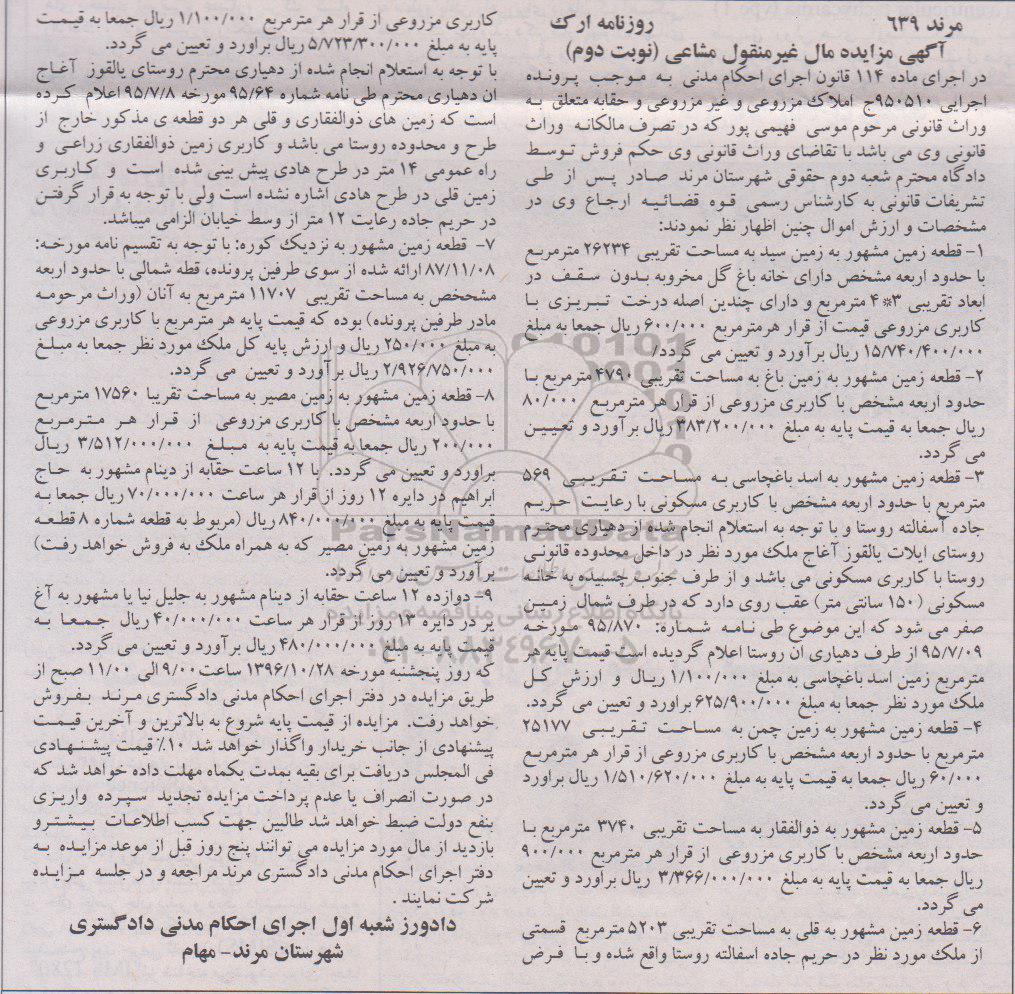 مرند ۶۳۹ روزنامه ارک
آگهی مزایده مال غیرمنقول مشاعی (نوبت دوم)
در اجرای ماده ۱۱۴ قانون اجرای احکام مدنی به موجب پرونده
اجرایی ۹۵۰۵۱۰ج املاک مزروعی و غیر مزروعی و حقابه متعلق به
وراث قانونی مرحوم موسی فهیمی پور که در تصرف مالکانه وراث
قانونی وی می باشد با تقاضای وراث قانونی وی حکم فروش توسط
دادگاه محترم شعبه دوم حقوقی شهرستان مرند صادر پس از طی
تشریفات قانونی به کارشناس رسمی قوه قضائیه ارجاع وی در
مشخصات و ارزش اموال چنین اظهار نظر نمودند:
۱- قطعه زمین مشهور به زمین سید به مساحت تقریبی ۲۶۲۳۴ مترمربع
با حدود اربعه مشخص دارای خانه باغ گل مخروبه بدون سقف در
ابعاد تقریبی ۳*۴ مترمربع و دارای چندین اصله درخت تبریزی با
کاربری مزروعی قیمت از قرار هرمترمربع ۶۰۰/۰۰۰ ریال جمعا به مبلغ
۱۵/۷۴۰/۴۰۰/۰۰۰ ریال برآورد و تعیین می گردد/
۲- قطعه زمین مشهور به زمین باغ به مساحت تقریبی ۴۷۹۰ مترمربع با
حدود اربعه مشخص با کاربری مزروعی از قرار هر مترمربع ۸۰/۰۰۰
ریال جمعا به قیمت پایه به مبلغ ۳۸۳/۲۰۰/۰۰۰ ریال برآورد و تعیین
می گردد.
۳- قطعه زمین مشهور به اسد باغچاسی به مساحت تقریبی ۵۶۹
مترمربع با حدود اربعه مشخص با کاربری مسکونی با رعایت حریم
جاده آسفالته روستا و با توجه به استعلام انجام شده از دهیاری محترم
روستای ایلات یالقوز آغاج ملک مورد نظر در داخل محدوده قانونی
روستا با کاربری مسکونی می باشد و از طرف جنوب چسبیده به خانه
مسکونی (۱۵۰ سانتی متر) عقب روی دارد که در طرف شمال زمین
صفر می شود که این موضوع طی نامه شماره: ۹۵/۸۷۰ مورخه
۹۵/۷/۰۹ از طرف دهیاری ان روستا اعلام گردیده است قیمت پایه هر
مترمربع زمین اسد باغچاسی به مبلغ ۱/۱۰۰/۰۰۰ ریال و ارزش کل
ملک مورد نظر جمعا به مبلغ ۶۲۵/۹۰۰/۰۰۰ براورد و تعیین می گردد.
۴- قطعه زمین مشهور به زمین چمن به مساحت تقریبی ۲۵۱۷۷
مترمربع با حدود اربعه مشخص با کاربری مزروعی از قرار هر مترمربع
۶۰/۰۰۰ ریال جمعا به قیمت پایه به مبلغ ۱/۵۱۰/۶۲۰/۰۰۰ ریال براورد
و تعیین می گردد.
۵- قطعه زمین مشهور به ذوالفقار به مساحت تقریبی ۳۷۴۰ مترمربع با
حدود اربعه مشخص با کاربری مزروعی از قرار هر مترمربع ۹۰۰/۰۰۰
ریال جمعا به قیمت پایه به مبلغ ۳/۳۶۶/۰۰۰/۰۰۰ ریال براورد و تعیین
می گردد.
۶- قطعه زمین مشهور به قلی به مساحت تقریبی ۵۲۰۳ مترمربع قسمتی
از ملک مورد نظر در حریم جاده اسفالته روستا واقع شده و با فرض
کاربری مزروعی از قرار هر مترمربع ۱/۱۰۰/۰۰۰ ریال جمعا به قیمت
پایه به مبلغ ۵/۷۲۳/۳۰۰/۰۰۰ ریال براورد و تعیین می گردد.
با توجه به استعلام انجام شده از دهیاری محترم روستای یالقوز آغاج
ان دهیاری محترم طی نامه شماره ۹۵/۶۴ مورخه ۹۵/۷/۸ اعلام کرده
است که زمین های ذوالفقاری و قلی هر دو قطعه ی مذکور خارج از
طرح و محدوده روستا می باشد و کاربری زمین ذوالفقاری زراعی و
راه عمومی ۱۴ متر در طرح هادی پیش بینی شده است و کاربری
زمین قلی در طرح هادی اشاره نشده است ولی با توجه به قرار گرفتن
در حریم جاده رعایت ۱۲ متر از وسط خیابان الزامی میباشد.
۷- قطعه زمین مشهور به نزدیک کوره: با توجه به تقسیم نامه مورخه:
۸۷/۱۱/۰۸ ارائه شده از سوی طرفین پرونده، قطه شمالی با حدود اربعه
مشحخص به مساحت تقریبی ۱۱۷۰۷ مترمربع به آنان (وراث مرحومه
مادر طرفین پرونده) بوده که قیمت پایه هر مترمربع با کاربری مزروعی
به مبلغ ۲۵۰/۰۰۰ ریال و ارزش پایه کل ملک مورد نظر جمعا به مبلغ
۲/۹۲۶/۷۵۰/۰۰۰ ریال برآورد و تعیین می گردد.
۸- قطعه زمین مشهور به زمین مصیر به مساحت تقریبا ۱۷۵۶۰ مترمربع
با حدود اربعه مشخص با کاربری مزروعی از قرار هر مترمربع
۲۰۰/۰۰۰ ریال جمعا به قیمت پایه به مبلغ ۳/۵۱۲/۰۰۰/۰۰۰ ریال
براورد و تعیین می گردد. با ۱۲ ساعت حقابه از دینام مشهور به حاج
ابراهیم در دایره ۱۲ روز از قرار هر ساعت ۷۰/۰۰۰/۰۰۰ ریال جمعا به
قیمت پایه به مبلغ ۸۴۰/۰۰۰/۰۰۰ ریال (مربوط به قطعه شماره ۸ قطعه
زمین مشهور به زمین مصیر که به همراه ملک به فروش خواهد رفت)
برآورد و تعیین می گردد.
۹- دوازده ۱۲ ساعت حقابه از دینام مشهور به جلیل نیا یا مشهور به آغ
یر در دایره ۱۳ روز از قرار هر ساعت ۴۰/۰۰۰/۰۰۰ ریال جمعا به
قیمت پایه به مبلغ ۴۸۰/۰۰۰/۰۰۰ ریال برآورد و تعیین می گردد.
که روز پنجشنبه مورخه ۱۳۹۶/۱۰/۲۸ ساعت ۹/۰۰ الی ۱۱/۰۰ صبح از
طریق مزایده در دفتر اجرای احکام مدنی دادگستری مرند بفروش
خواهد رفت. مزایده از قیمت پایه شروع به بالاترین و آخرین قیمت
پیشنهادی از جانب خریدار واگذار خواهد شد ۱۰٪ قیمت پیشنهادی
فی المجلس دریافت برای بقیه بمدت یکماه مهلت داده خواهد شد که
در صورت انصراف یا عدم پرداخت مزایده تجدید سپرده واریزی
بنفع دولت ضبط خواهد شد طالبین جهت کسب اطلاعات بیشترو
بازدید از مال مورد مزایده می توانند پنج روز قبل از موعد مزایده به
دفتر اجرای احکام مدنی دادگستری مرند مراجعه و در جلسه مزایده
شرکت نمایند .
دادورز شعبه اول اجرای احکام مدنی دادگستری
شهرستان مرند- مهام
ParsNamadData
پایگاه اطلاع رسانی مناقصه و مزایده
۰۲۱-۸۸۳۴۹۶۷۰-۵